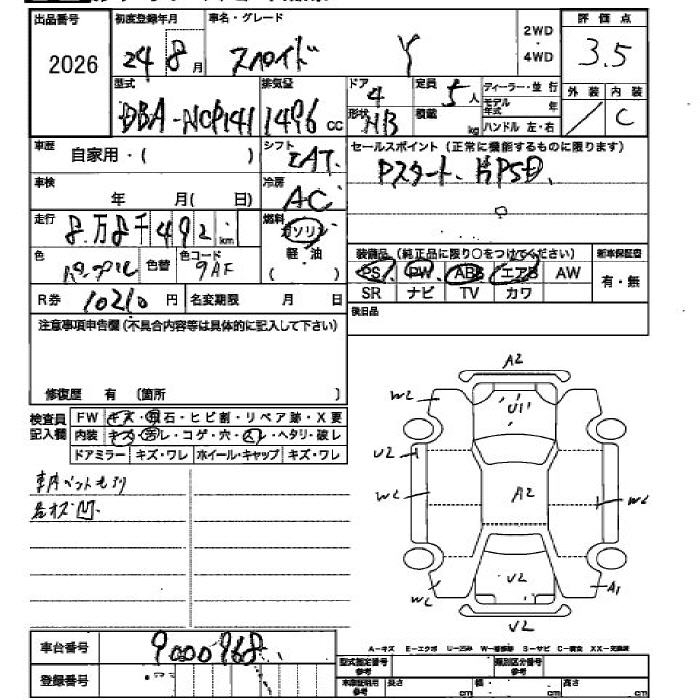 出品番号
2026
初度登録年月
24 8月
車名・グレード
スパイド Y
2WD
・
4WD
評価点
3.5
型式
DBA-NCP141
排気量
1496 CC
ドア
4
形状
HB
定員
5人
積載
kg
ディーラー・並行
モデル年式 年
ハンドル 左・右
外装 内装
/ C
車歴
自家用・( )
シフト
IAT
セールスポイント (正常に機能するものに限ります)
Pスタート、片PSD.
車検
年 月( 日)
冷房
AC
走行
8万8千492km
燃料
ガソリン
軽・油
( )
色
パープル
色替
色コード
9AF
装備品 (純正品に限り○をつけてください)
新車保証書
PS PW ABS エアB AW
有・無
SR ナビ TV カワ
R券 10210円
名変期限 月 日
後日品
注意事項申告欄(不具合内容等は具体的に記入して下さい)
修復歴 有 〔箇所 〕
検査員記入欄
FW キズ・飛石・ヒビ割・リペア跡・X要
内装 キズ・汚レ・コゲ・穴・スレ・ヘタリ・破レ
ドアミラー キズ・ワレ ホイール・キャップ キズ・ワレ
A2
W2
U1
U2
W2
A2
W2
W2
U2
A1
U2
車台番号
9000968
登録番号
A-キズ E-エクボ U-凹み W-補修跡 S-サビ C-腐食 XX-交換済
型式指定番号
参考
類別区分番号
参考
車庫証明用
参考
長さ cm
幅 cm
高さ cm